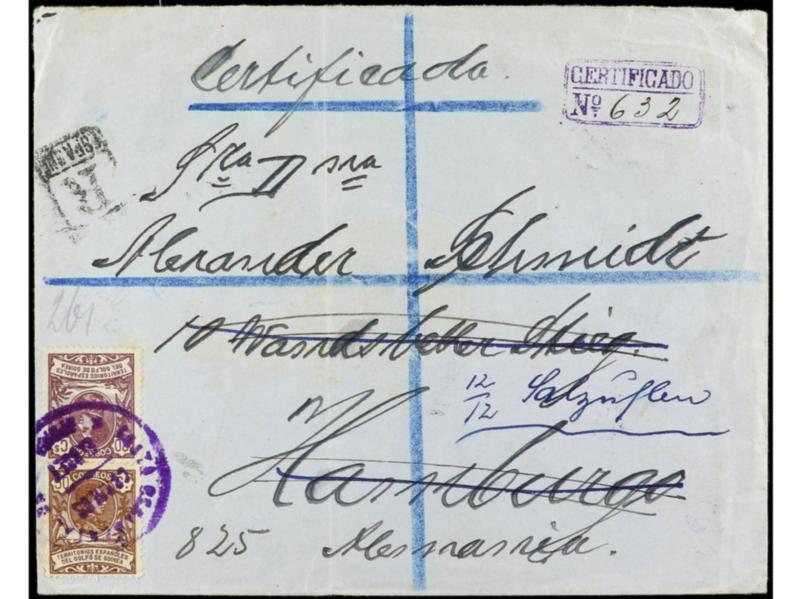 Certificada.
CERTIFICADO
Nº 632
Sra Dna
Alexander Schmidt
261
10 Wandsbecker Stieg.
12/12 Salzuflen
Hamburgo
825 Alemania.
TERRITORIOS ESPAÑOLES
DEL GOLFO DE GUINEA
CORREOS
CORREOS
TERRITORIOS ESPAÑOLES
DEL GOLFO DE GUINEA